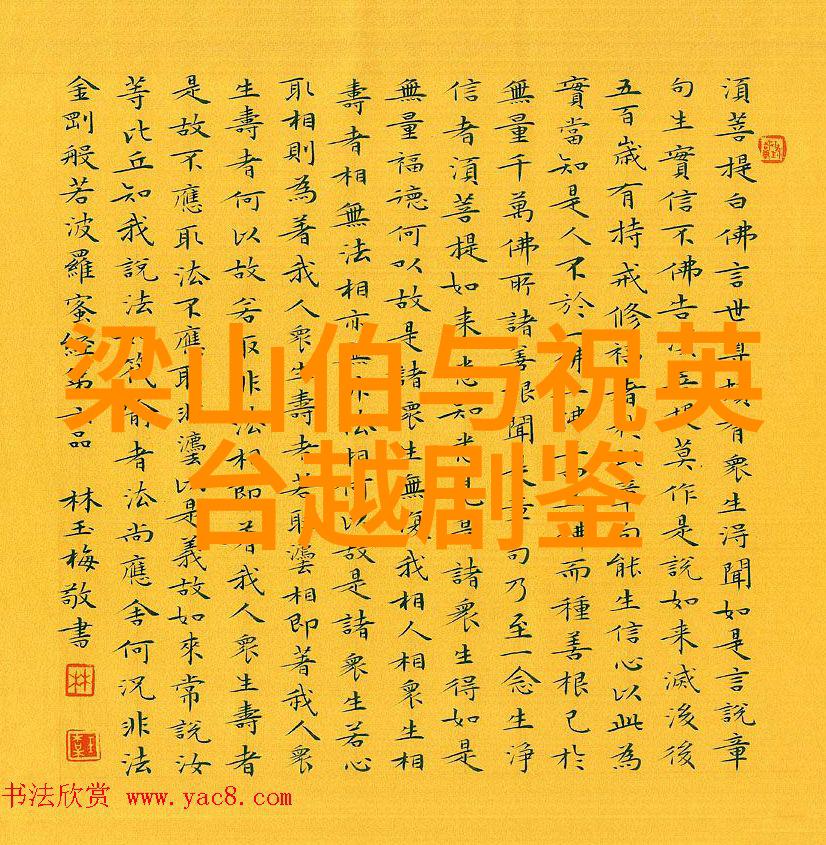 湏菩提白佛言世尊頗有衆生淂聞如是言說章
句生實信不佛告湏菩提莫作是說如来滅後後
五百嵗有持戒修福者於此章句能生信心以此為
實當知是人不於一佛二佛而種善根已於
無量千萬佛所諸善根聞是章句乃至一念生淨
信者湏菩提如来悉知悉見是諸衆生得如是
無量福德何以故是諸衆生無復我相人相衆生相
壽者相無法相亦無非法相何以故是諸衆生若心
取相則為著我人衆生壽者若取灋相即著我人衆
生壽者何以故若取非法相即著我人衆生壽者
是故不應取法不應取非灋以是義故如來常說汝
等比丘知我說法如筏喻者法尚應舍何况非法
金剛般若波羅蜜經第六品 林玉梅敬書
梁山伯与祝英
台越剧鉴
书法欣赏 www.yac8.com